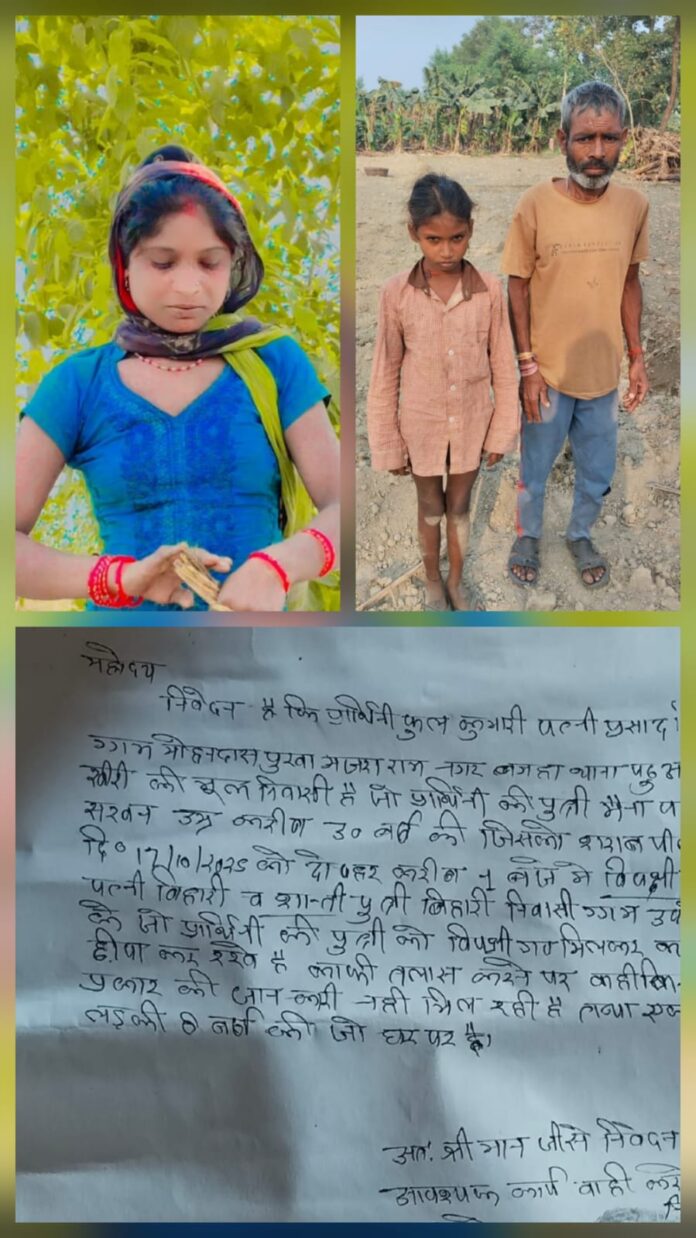 महोदय
निवेदन है कि प्रार्थिनी फुल कुमारी पत्नी प्रसादी
ग्राम मोहनदास पुरवा मजरा राम नगर बगहा थाना पढुआ
खीरी की मूल निवासी है जो प्रार्थिनी की पुत्री मैना
सरवन उम्र करीब 30 वर्ष की जिसको शराब
दि० 17/10/2025 को दोपहर करीब 1 बजे मे विपक्षी
पत्नी बिहारी व शान्ती पुत्री बिहारी निवासी ग्राम
के जो प्रार्थिनी की पुत्री को विपक्षी गण मिलकर
छीपा कर रखे है काफी तलास करने पर कही
प्रकार की जानकरी नही मिल रही है तथा
लड़की 8 वर्ष की जो घर पर है।
अतः श्री मान जीसे निवेदन
आवश्यक कार्यवाही करे